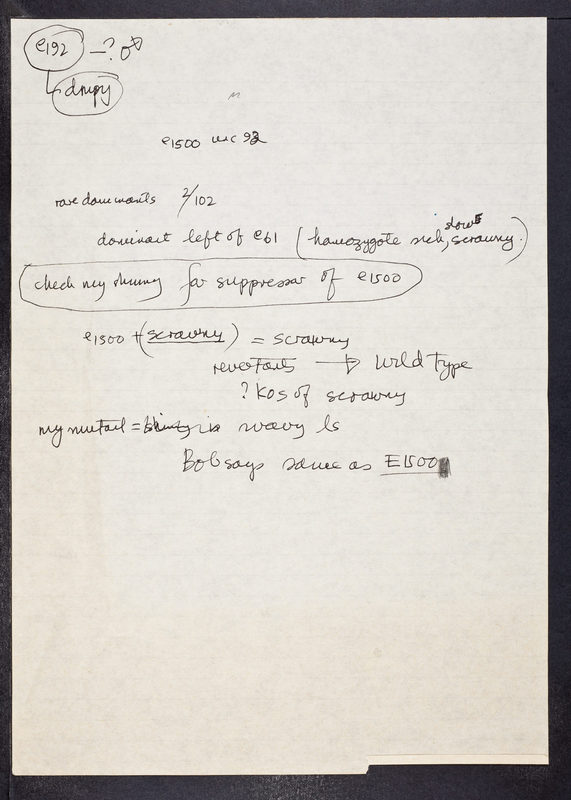 e192 – ? ♂
dumpy
e1500 unc 93
rare dominants 2/102
slow
dominant left of e61 (homozygote sick, scrawny.)
check my shrimp for suppressor of e1500
e1500 + (scrawny) = scrawny
revertants → wild type
? KOs of scrawny
my mutant = is wavy ls
Bob says same as E1500